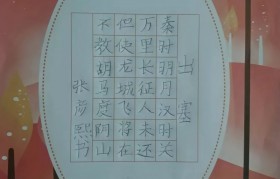 出塞
秦时明月汉时关
万里长征人未还
但使龙城飞将在
不教胡马度阴山
张彦熙书